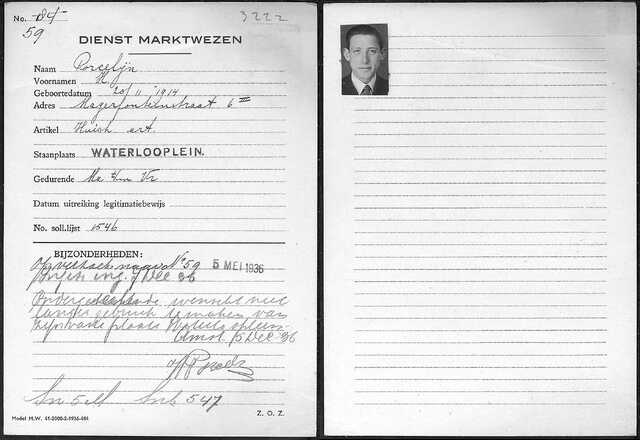 No. 84 3222
59
DIENST MARKTWEZEN
Naam Porcelijn
Voornamen M.
Geboortedatum 20/11 1914
Adres Magersfonteinstraat 6 III
Artikel Huish art.
Staanplaats WATERLOOPLEIN.
Gedurende Ma t/m Vr
Datum uitreiking legitimatiebewijs
No. soll.lijst 1546
BIJZONDERHEDEN:
Op verzoek naar No 59 5 MEI 1936
ing. 7 Dec 36
Ondergeteekende wenscht niet
langer gebruik te maken van
zijn vaste plaats Waterlooplein
Amst. 5 Dec '36
547
Model M.W. 41-2000-2-1936-601 Z. O. Z.